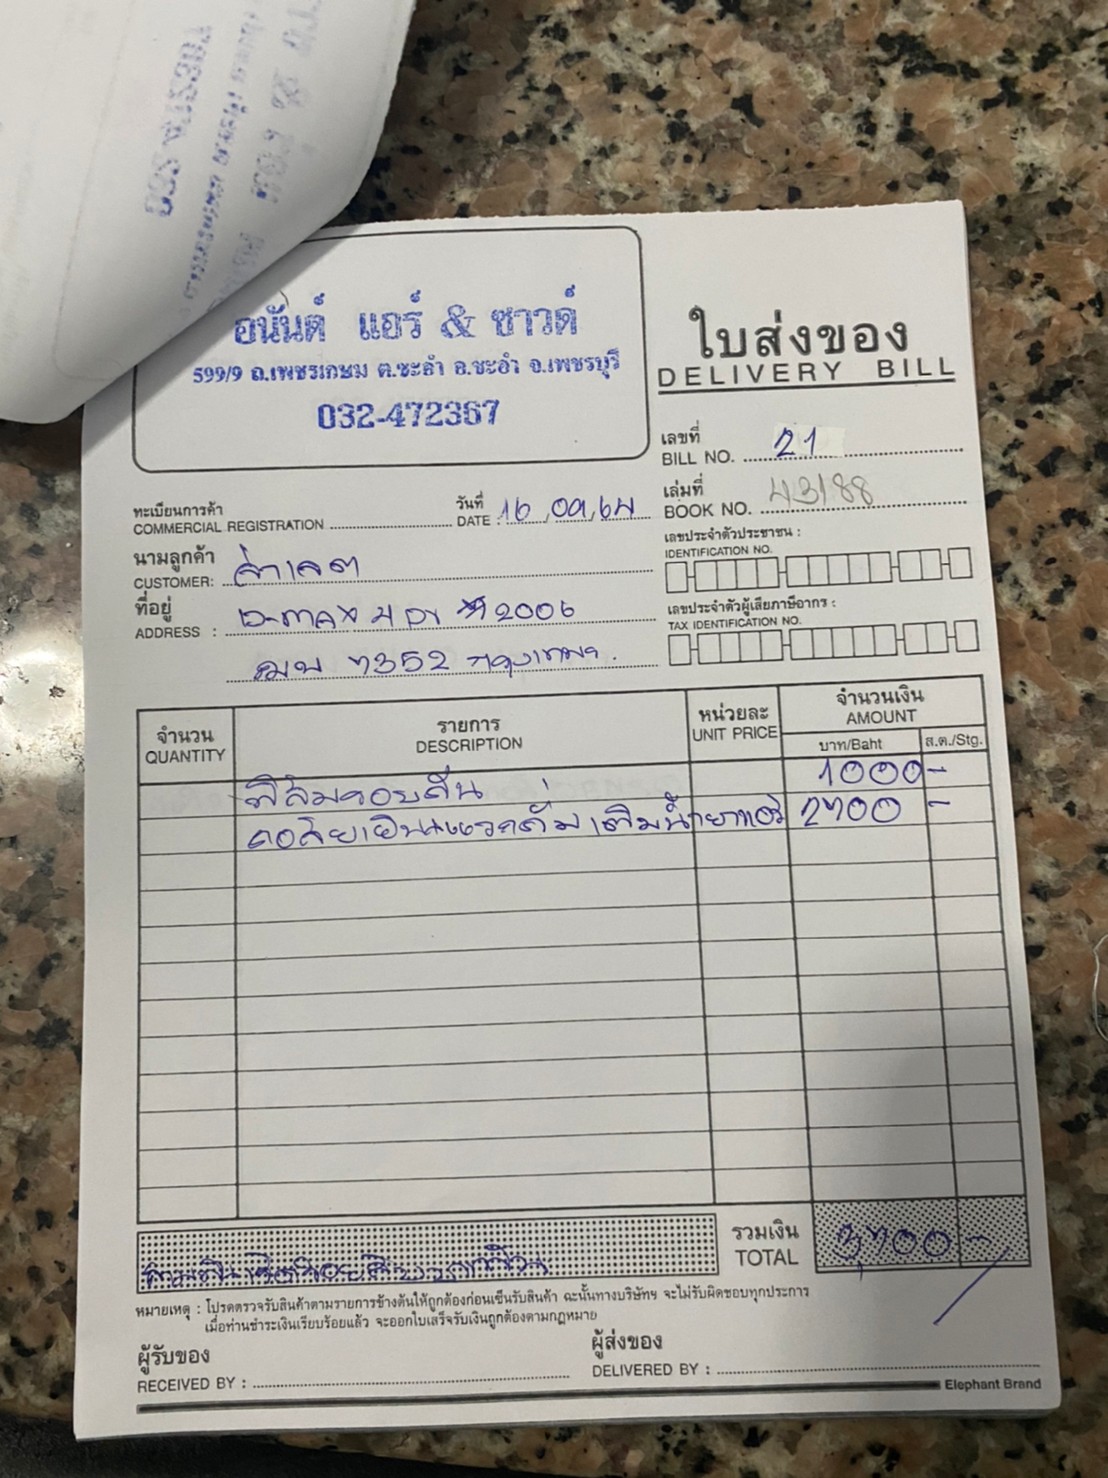 อนันต์ แอร์ & ซาวด์
599/9 ถ.เพชรเกษม ต.ชะอำ อ.ชะอำ จ.เพชรบุรี
032-472367
ใบส่งของ
DELIVERY BILL
เลขที่
BILL NO. 21
เล่มที่
BOOK NO. 43188
ทะเบียนการค้า
COMMERCIAL REGISTRATION
วันที่
DATE : 16, 09, 64
เลขประจำตัวประชาชน :
IDENTIFICATION NO.
นามลูกค้า
CUSTOMER:
ที่อยู่
ADDRESS : D-MAX 4 ปต ปี 2006
7352 กรุงเทพฯ.
เลขประจำตัวผู้เสียภาษีอากร :
TAX IDENTIFICATION NO.
จำนวน
QUANTITY
รายการ
DESCRIPTION
หน่วยละ
UNIT PRICE
จำนวนเงิน
AMOUNT
บาท/Baht
ส.ต./Stg.
ฟิล์มรอบคัน 1000 -
คอล์ยเย็น+แวคคั่ม เติมน้ำยาแอร์ 2700 -
สามพันเจ็ดร้อยบาทถ้วน
รวมเงิน
TOTAL 3,700 -
หมายเหตุ : โปรดตรวจรับสินค้าตามรายการข้างต้นให้ถูกต้องก่อนเซ็นรับสินค้า ฉะนั้นทางบริษัทฯ จะไม่รับผิดชอบทุกประการ
เมื่อท่านชำระเงินเรียบร้อยแล้ว จะออกใบเสร็จรับเงินถูกต้องตามกฎหมาย
ผู้รับของ
RECEIVED BY :
ผู้ส่งของ
DELIVERED BY :
Elephant Brand